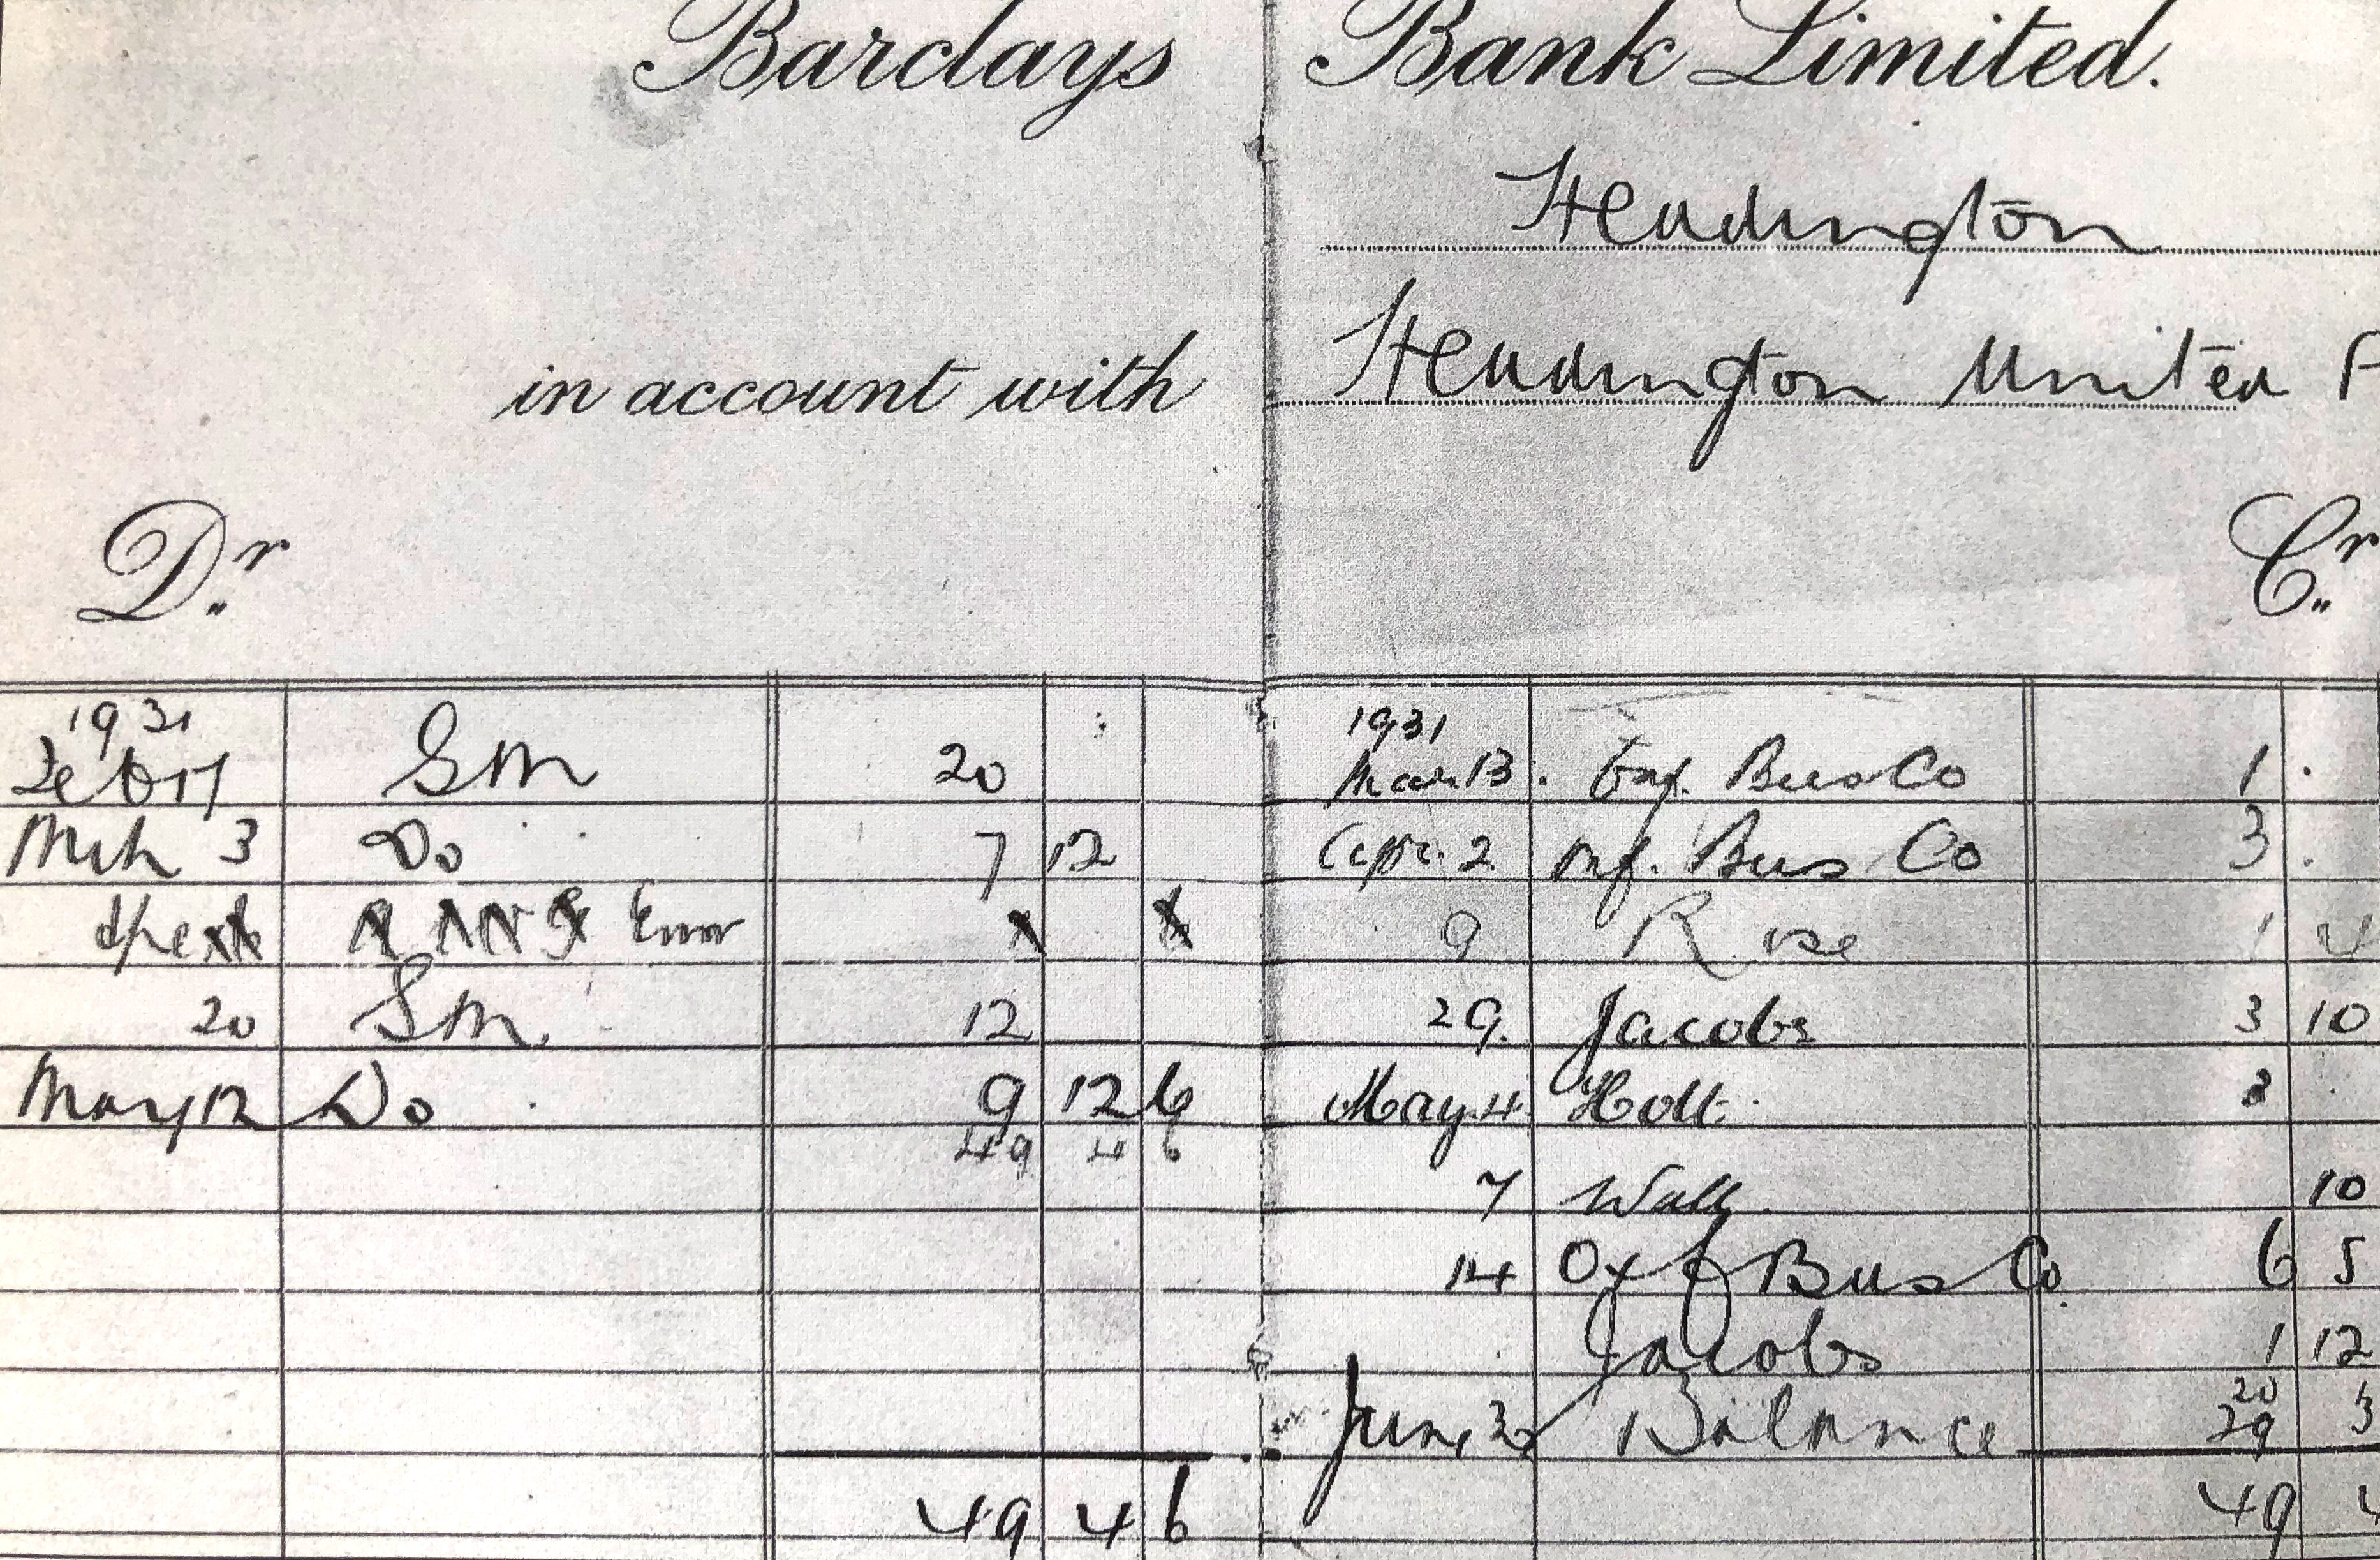 Barclays Bank Limited.
Headington
in account with Headington United F
Dr. Cr.
1931 1931
Feb 17 Sm 20 Mar. 13. Oxf. Bus Co 1 .
Mch 3 Do 7 12 Apr. 2 Oxf. Bus Co 3 .
Error 9 Rose 1 4
20 Sm. 12 29. Jacobs 3 10
May 12 Do 9 12 6 May. 4 Holt. 3 .
49 4 6
7 Wall 10
14 Oxf Bus Co. 6 5
Jacobs 1 12
20
June Balance 29 3
49 4 6 49 4